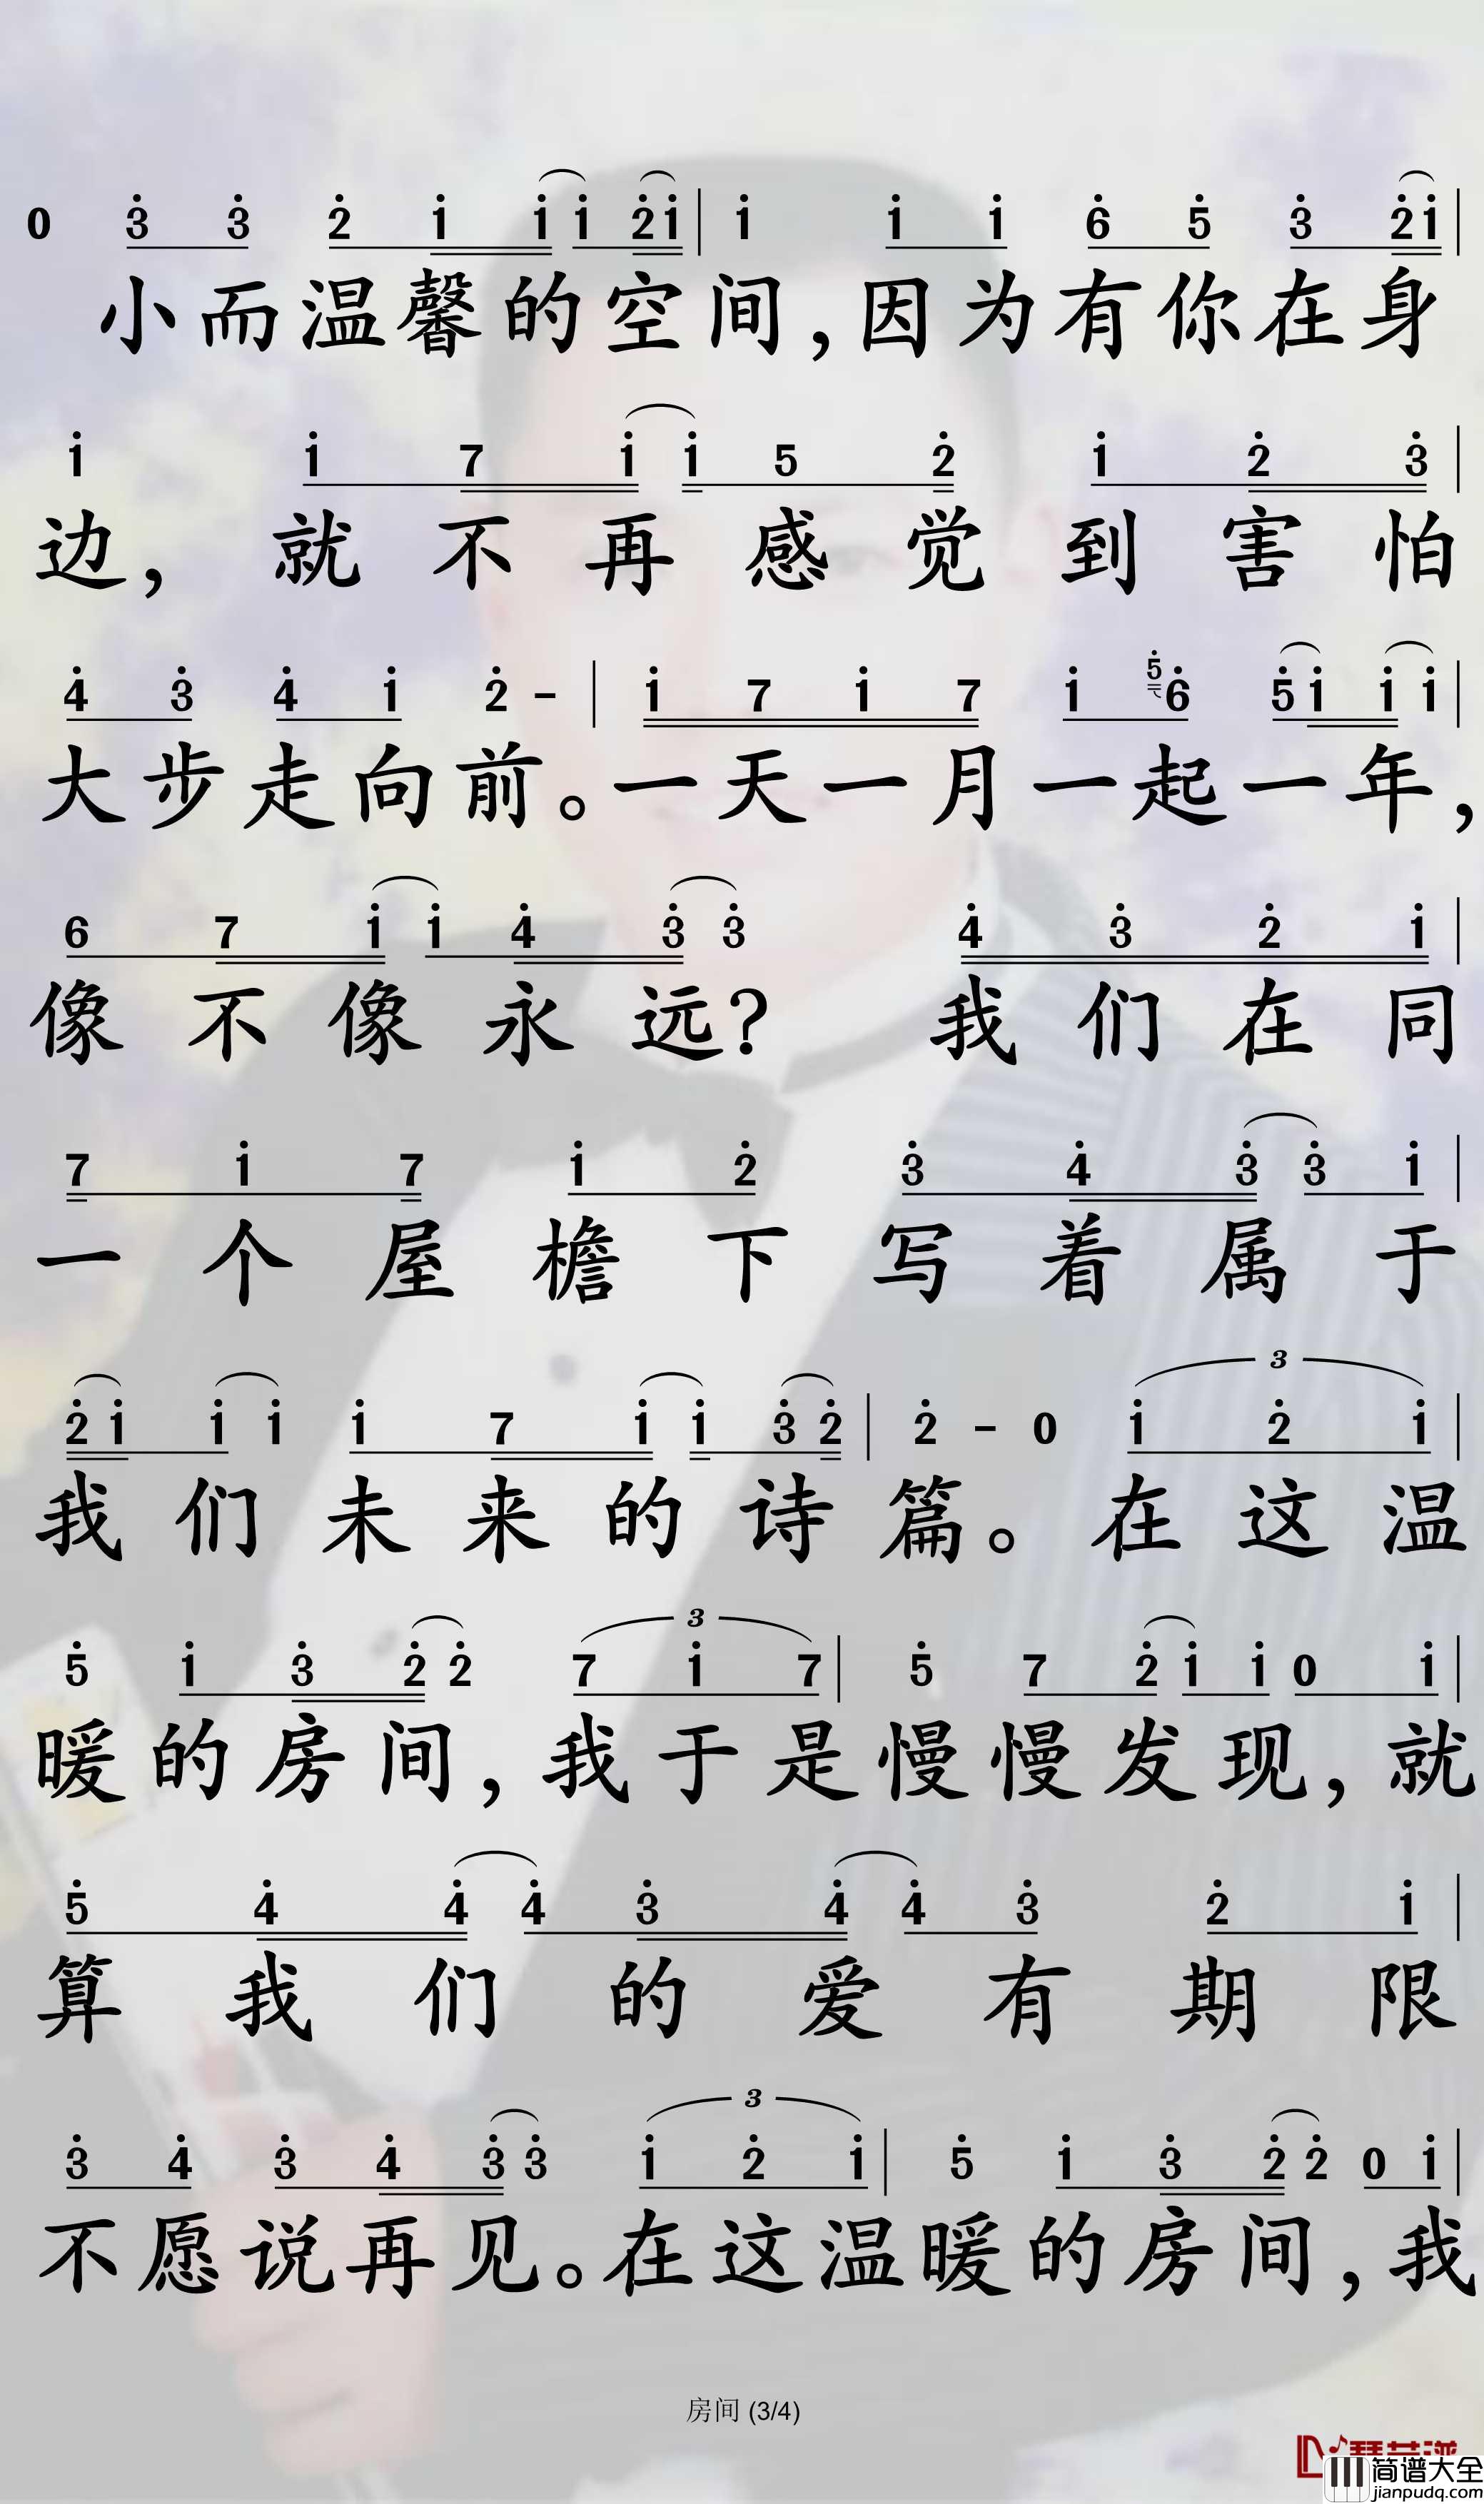 0 3 3 2 1 1 1 2 1 | 1 1 1 6 5 3 2 1 |
小而温馨的空间,因为有你在身
1 1 7 1 1 5 2 1 2 3 |
边,就不再感觉到害怕
4 3 4 1 2 - | 1 7 1 7 1 5 6 5 1 1 1 |
大步走向前。一天一月一起一年,
6 7 1 1 4 3 3 4 3 2 1 |
像不像永远?我们在同
7 1 7 1 2 3 4 3 3 1 |
一个屋檐下写着属于
3
2 1 1 1 1 7 1 1 3 2 | 2 - 0 1 2 1 |
我们未来的诗篇。在这温
3
5 1 3 2 2 7 1 7 | 5 7 2 1 1 0 1 |
暖的房间,我于是慢慢发现,就
5 4 4 4 3 4 4 3 2 1 |
算我们的爱有期限
3
3 4 3 4 3 3 1 2 1 | 5 1 3 2 2 0 1 |
不愿说再见。在这温暖的房间,我
房间 (3/4)
简谱大全
jianpudq.com